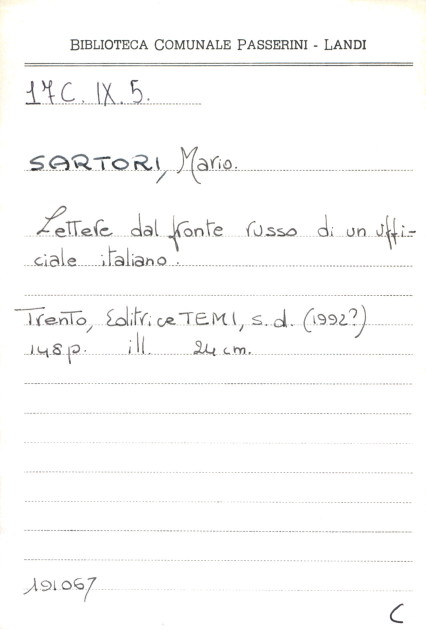 BIBLIOTECA COMUNALE PASSERINI - LANDI
17C. IX. 5.
SARTORI, Mario.
Lettere dal fronte russo di un uffi-
ciale italiano.
Trento, Editrice TEMI, s.d. (1992?)
148 p. ill. 24 cm.
191067
C